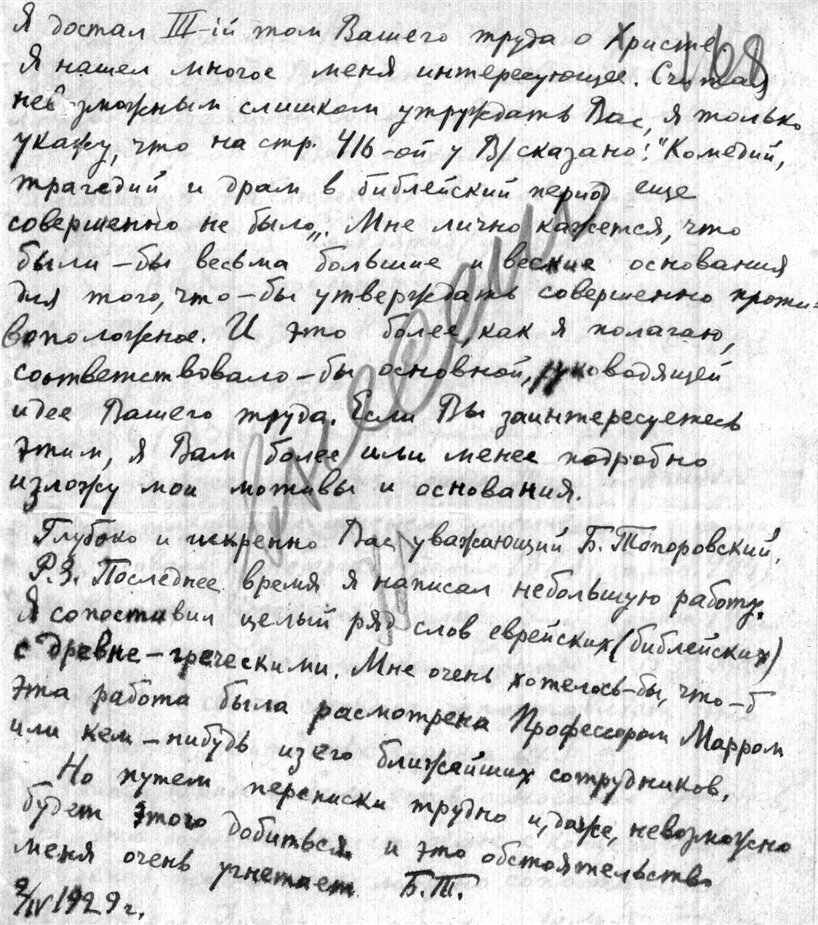 Я достал III-ій том Вашего труда о Христе.
168
Я нашел многое меня интересующее. Считая
невозможным слишком утруждать Вас, я только
укажу, что на стр. 416-ой у В/сказано: "Комедий,
трагедий и драм в библейский период еще
совершенно не было„. Мне лично кажется, что
были-бы весьма большие и веские основания
для того, что-бы утверждать совершенно проти-
воположное. И это более, как я полагаю,
соответствовало-бы основной, руководящей
идее Вашего труда. Если Вы заинтересуетесь
этим, я Вам более или менее подробно
изложу мои мотивы и основания.
Глубоко и искренно Вас уважающий Б. Топоровский.
P.S. Последнее время я написал небольшую работу.
Я сопоставил целый ряд слов еврейских (библейских)
с древне-греческими. Мне очень хотелось-бы, что-б
эта работа была расмотрена Профессором Марром
или кем-нибудь из его ближайших сотрудников.
Но путем переписки трудно и, даже, невозможно
будет этого добиться и это обстоятельство
меня очень угнетает Б.Т.
9/IV 1929 г.